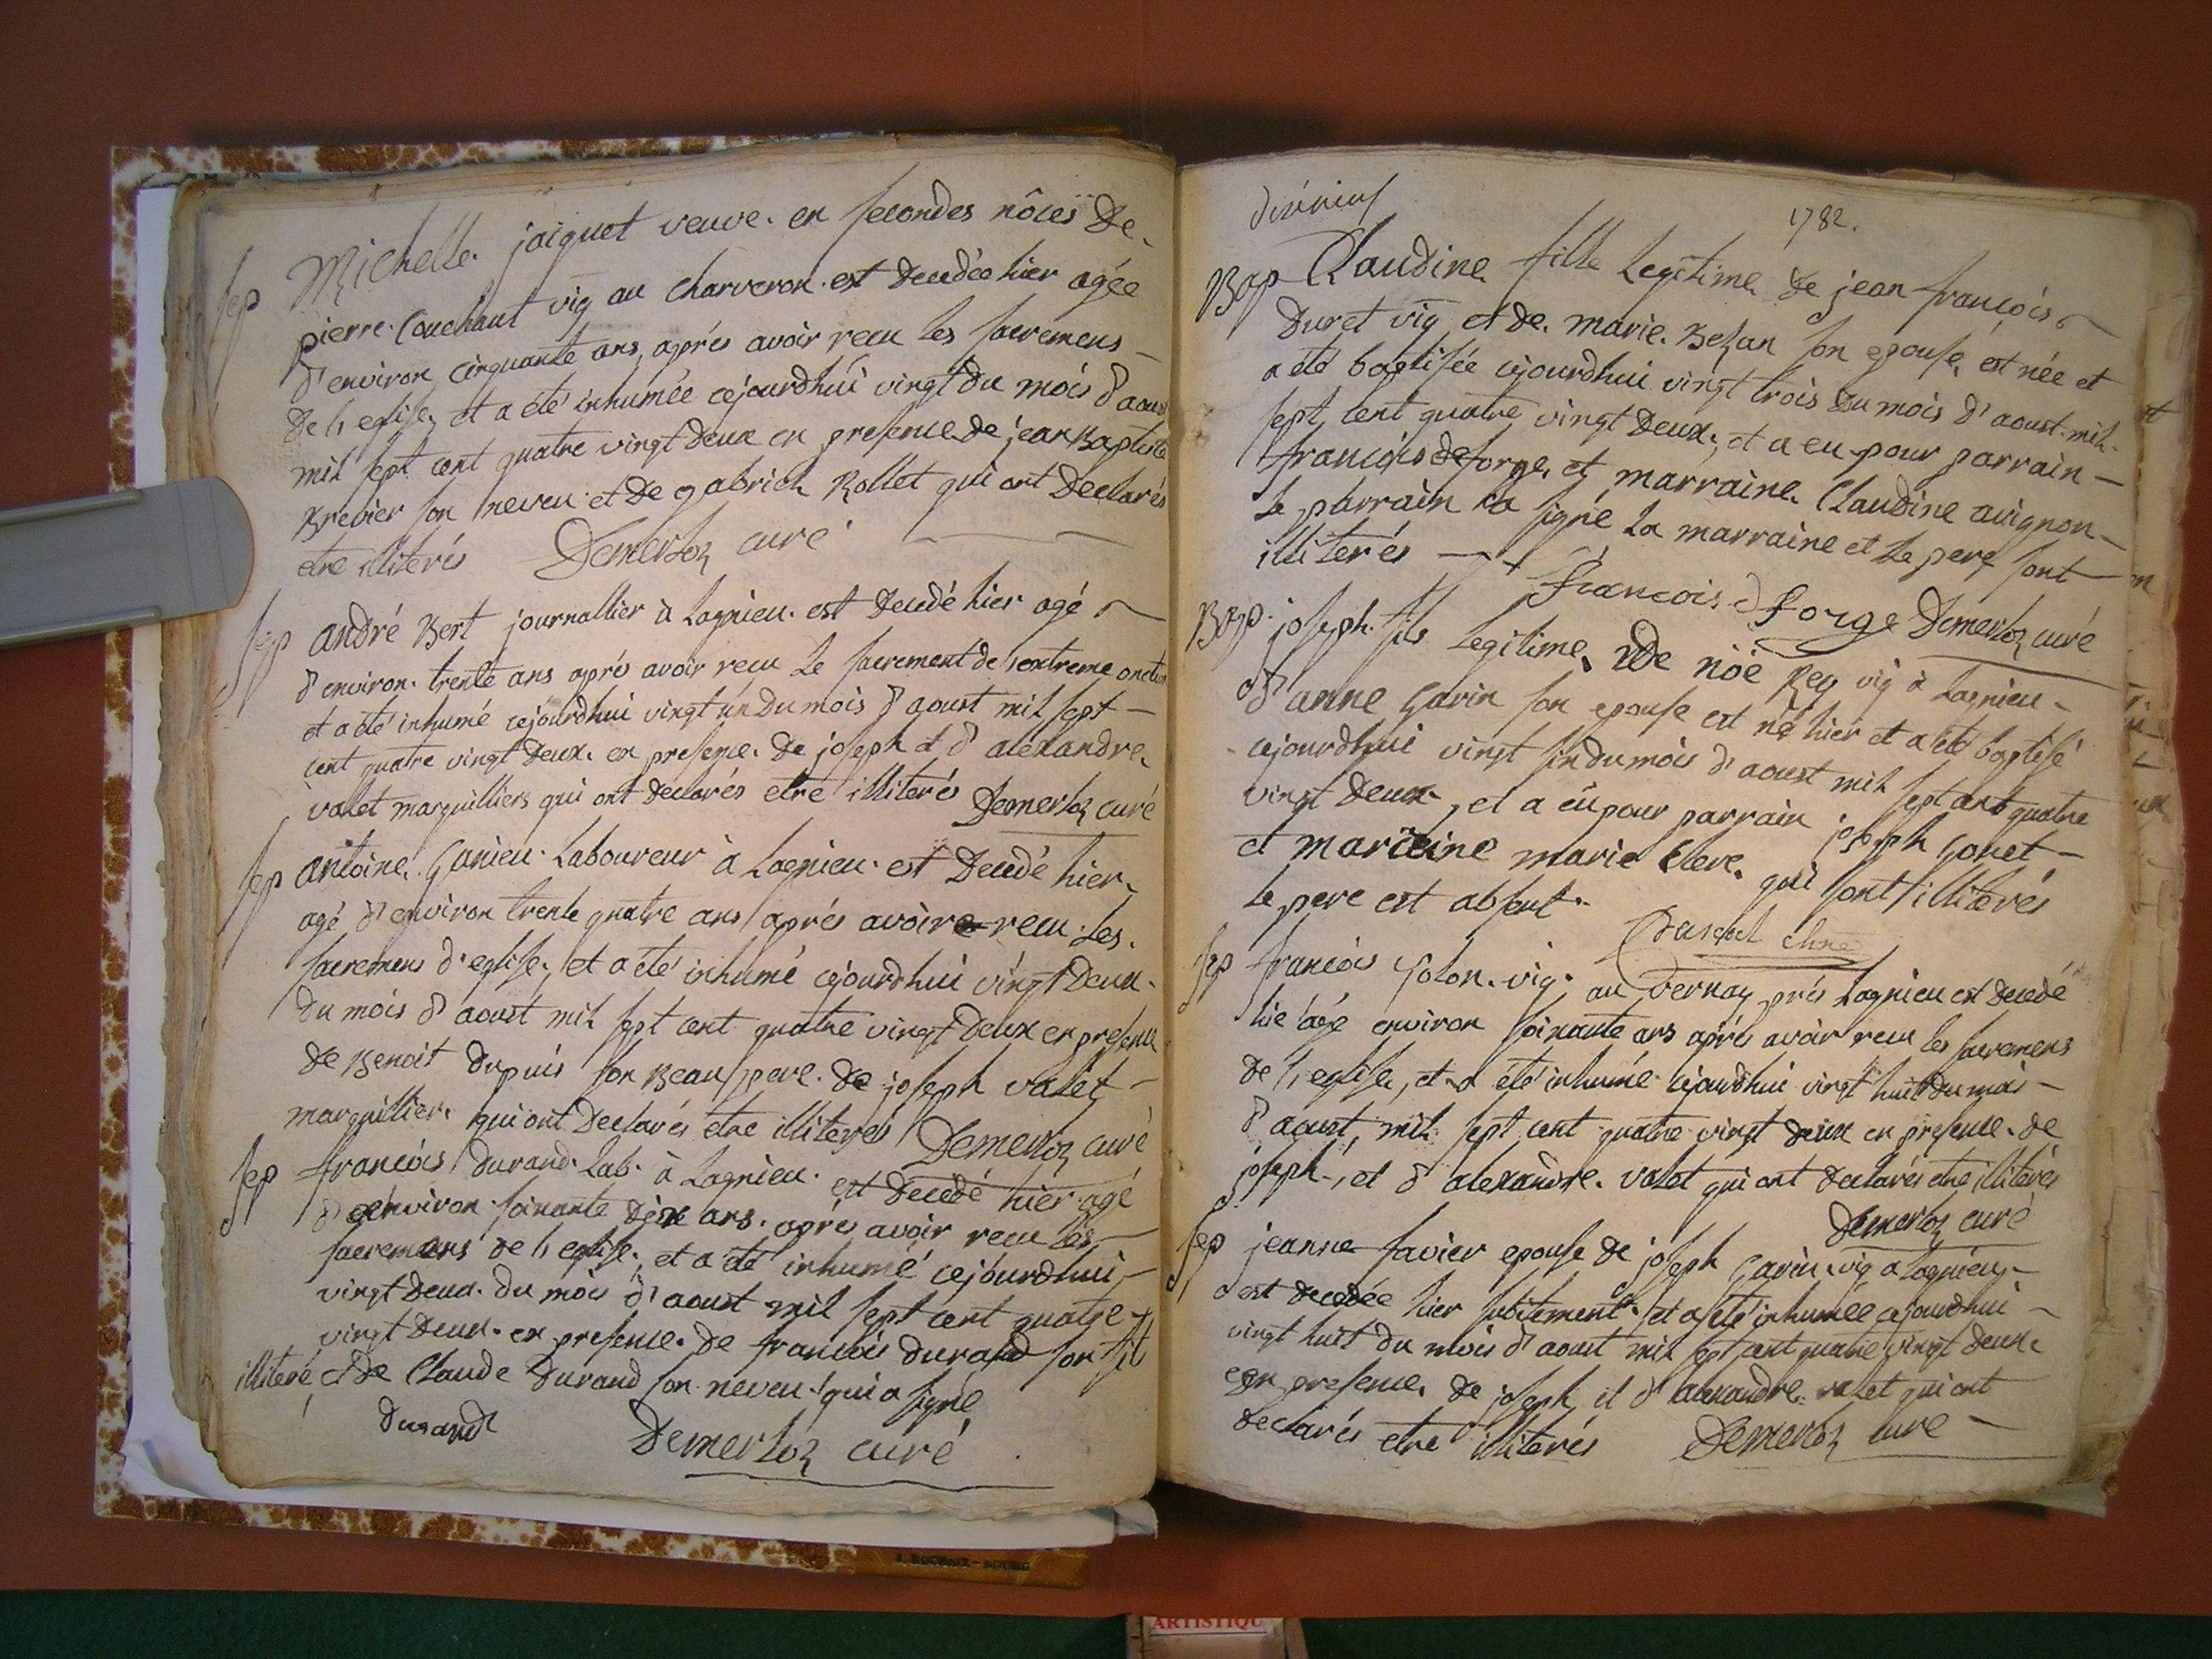 sep Michelle jaiquet veuve en secondes nôces de
pierre Couchaut vig au charveron est decedée hier agée
d'environ cinquante ans, aprés avoir recu les sacremens
de l'eglise, et a été inhumée cejourdhui vingt du mois d'aoust
mil sept cent quatre vingt deux en presence de jean Baptiste
Brevier son neveu et de gabriel Rollet qui ont declarés
etre illiterés Demerloz curé
sep andré Bert journallier à Lagnieu est decedé hier agé
d'environ trente ans aprés avoir recu le sacrement de l'extreme onction
et a été inhumé cejourdhui vingt un du mois d'aoust mil sept
cent quatre vingt deux en presence de joseph et d'alexandre
valet marguilliers qui ont declarés etre illiterés Demerloz curé
sep antoine Ganieu Laboureur à Lagnieu est decedé hier
agé d'environ trente quatre ans aprés avoir recu les
sacremens d'eglise, et a été inhumé cejourdhui vingt deux
du mois d'aoust mil sept cent quatre vingt deux en presence
de Benoit dupuis son Beaupere de joseph valet
marguillier qui ont declarés etre illiterés Demerloz curé
sep francois durand Lab. à Lagnieu est decedé hier agé
d'environ soixante dix ans aprés avoir recu les
sacremens de l'eglise, et a été inhumé cejourdhui
vingt deux du mois d'aoust mil sept cent quatre
vingt deux en presence de francois durand son fils
illiteré et de Claude Durand son neveu qui a signé
durand
Demerloz curé
dixneuf
1782.
Bap Claudine fille Legitime de jean francois
Duret vig et de marie Bezan son epouse, est née et
a été baptisée cejourdhui vingt trois du mois d'aoust mil
sept cent quatre vingt deux, et a eu pour parrain
francois deforge, et marraine Claudine avignon
le parrain a signé la marraine et le pere sont
illiterés
francois d forge Demerloz curé
Bap. joseph fils Legitime de nöe Rey vig à Lagnieu
d'anne Garin son epouse est né hier et a été baptisé
cejourdhui vingt six du mois d'aoust mil sept cent quatre
vingt deux, et a eu pour parrain joseph Gonet
et marraine marie Clere qui sont illiterés
le pere est absent.
sep francois Solon vig. au vernay prés Lagnieu est decedé
hie agé environ soixante ans aprés avoir recu les sacremens
de l'eglise, et a été inhumé cejourdhui vingt huit du mois
d'aoust, mil sept cent quatre vingt deux en presence de
joseph, et d'alexandre valet qui ont declarés etre illiterés
Demerloz curé
sep jeanne favier epouse de joseph Garin vig a Lagnieu
est decedée hier subitement et a été inhumée cejourdhui
vingt huit du mois d'aoust mil sept cent quatre vingt deux
en presence de joseph et d'alexandre valet qui ont
declarés etre illiterés Demerloz curé
ARTISTIQU